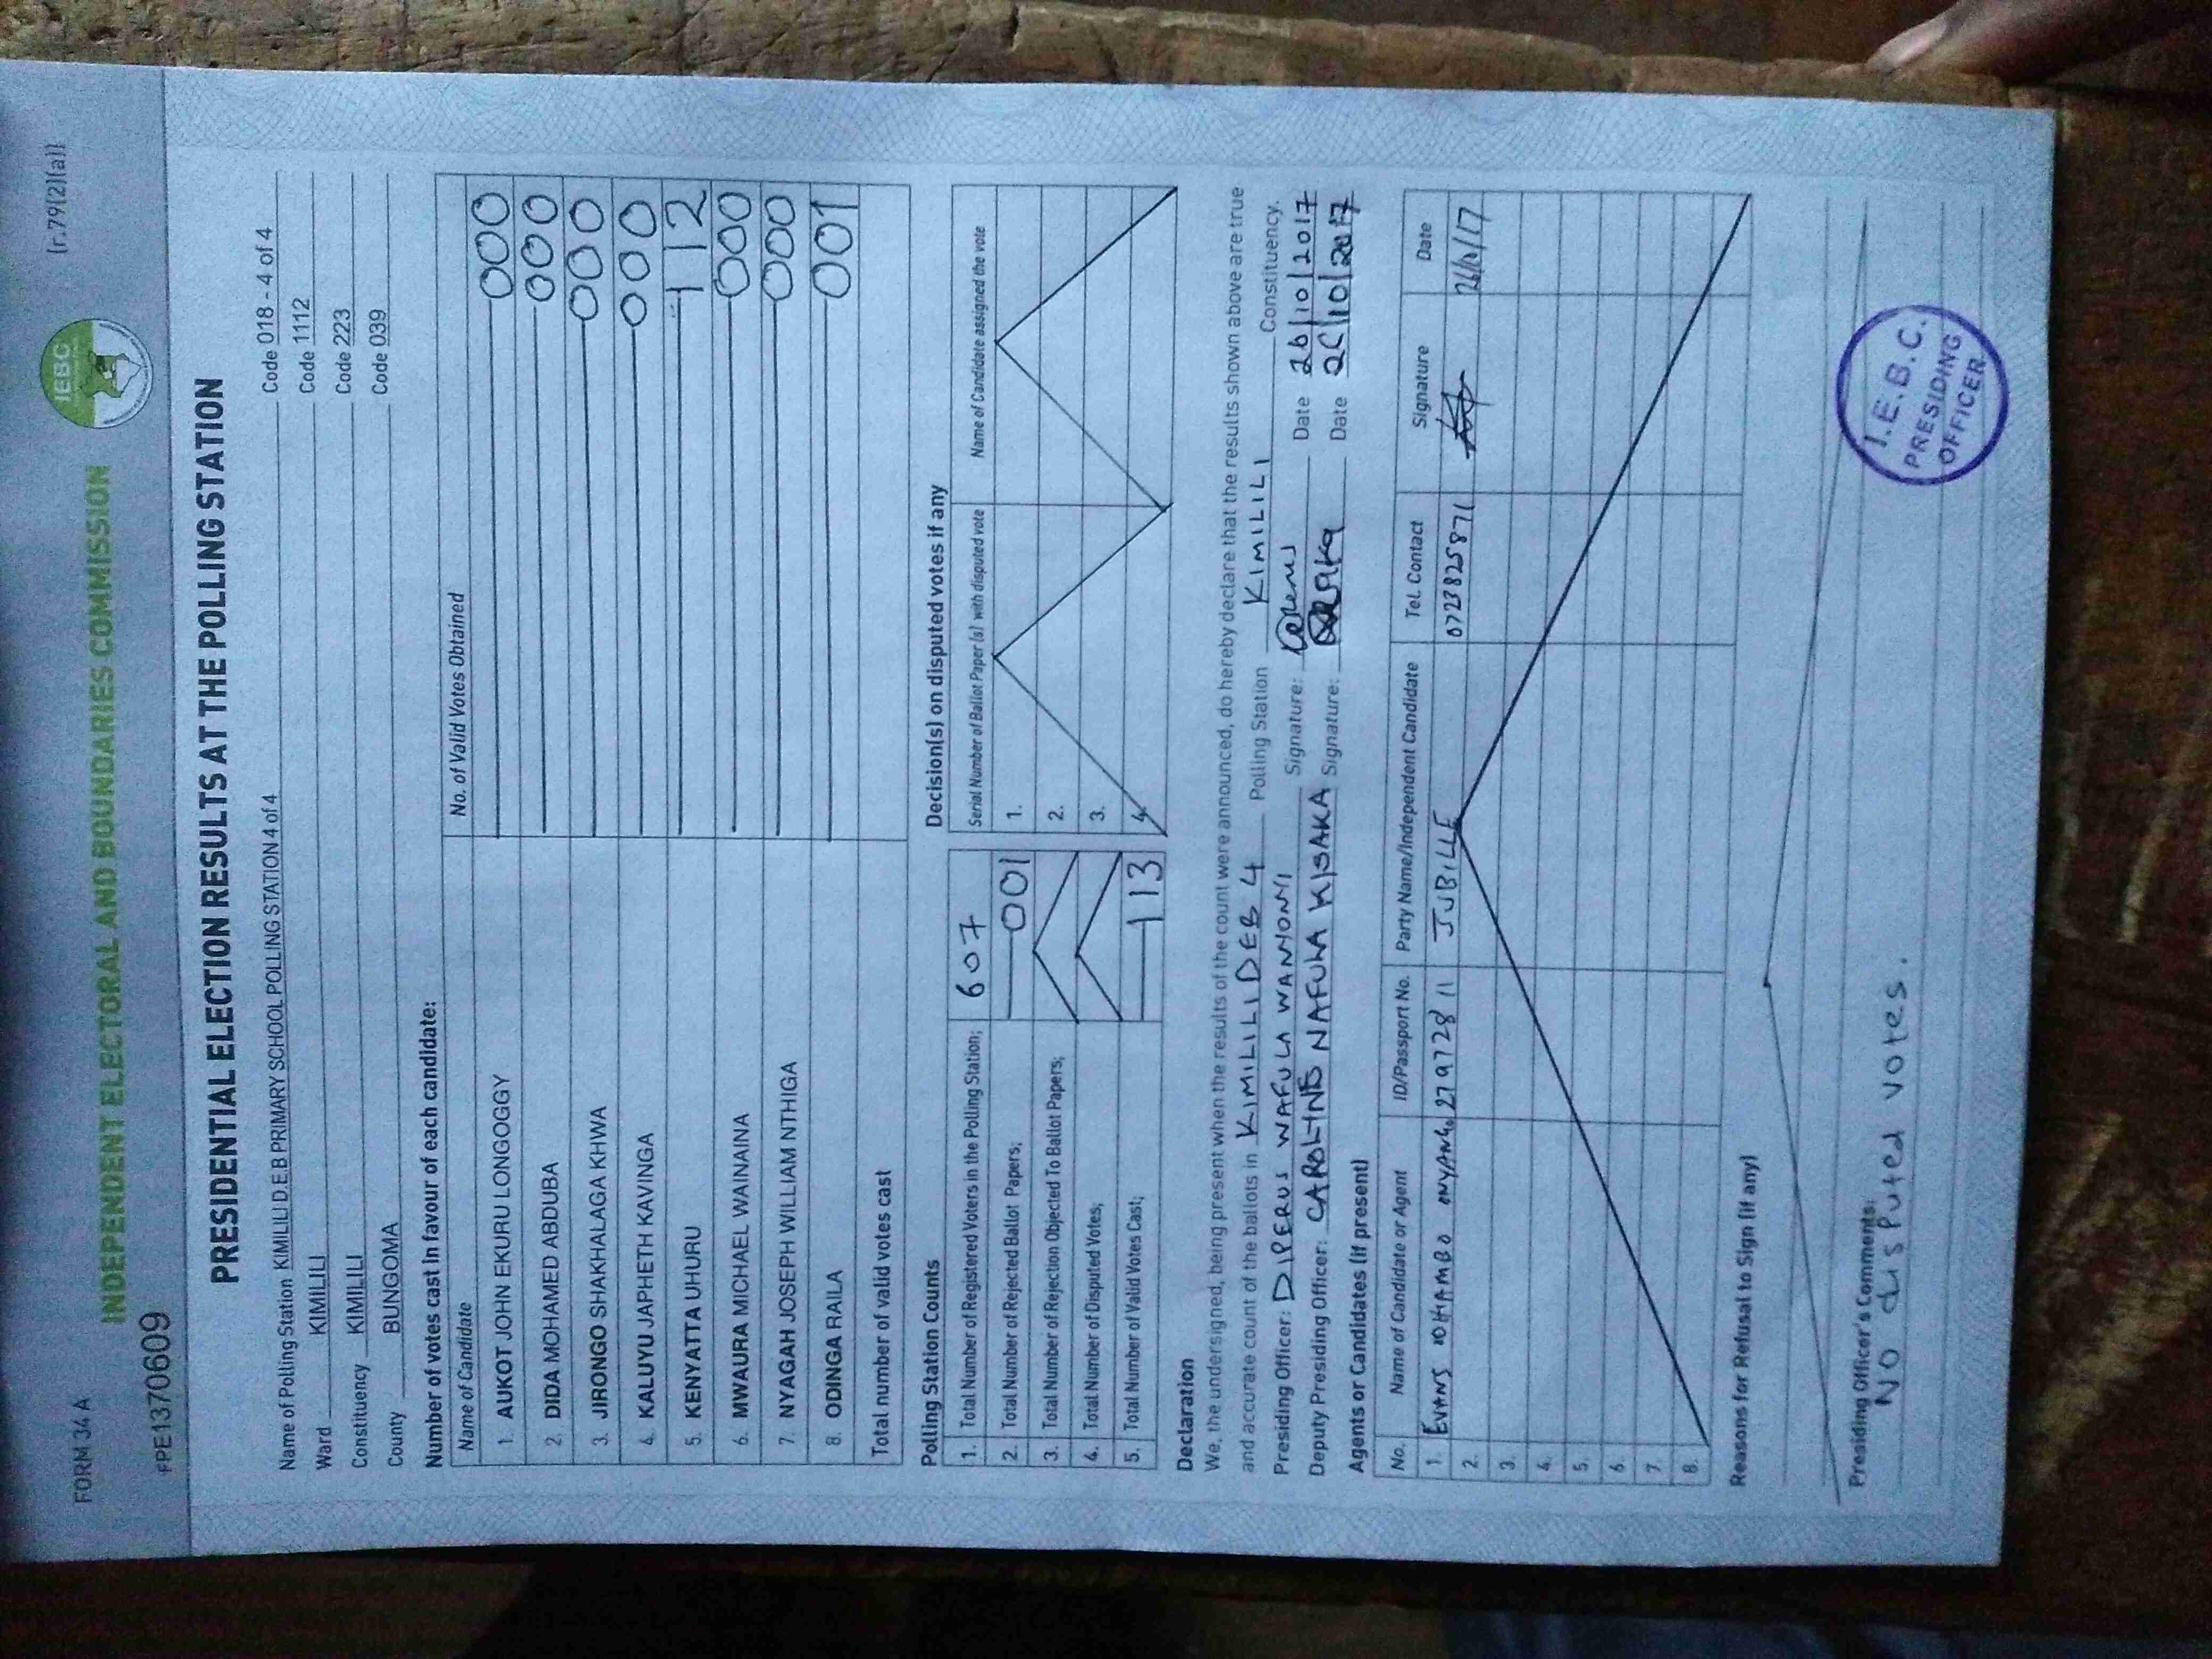 FORM 34 A
(r.79(2)(a))
IEBC
INDEPENDENT ELECTORAL AND BOUNDARIES COMMISSION
FPE1370609
PRESIDENTIAL ELECTION RESULTS AT THE POLLING STATION
Name of Polling Station KIMILILI D.E.B PRIMARY SCHOOL POLLING STATION 4 of 4 Code 018 - 4 of 4
Ward KIMILILI Code 1112
Constituency KIMILILI Code 223
County BUNGOMA Code 039
Number of votes cast in favour of each candidate:
Name of Candidate No. of Valid Votes Obtained
1. AUKOT JOHN EKURU LONGOGGY 000
2. DIDA MOHAMED ABDUBA 000
3. JIRONGO SHAKHALAGA KHWA 000
4. KALUYU JAPHETH KAVINGA 000
5. KENYATTA UHURU 112
6. MWAURA MICHAEL WAINAINA 000
7. NYAGAH JOSEPH WILLIAM NTHIGA 000
8. ODINGA RAILA 001
Total number of valid votes cast
Polling Station Counts
1. Total Number of Registered Voters in the Polling Station; 607
2. Total Number of Rejected Ballot Papers; 001
3. Total Number of Rejection Objected To Ballot Papers;
4. Total Number of Disputed Votes;
5. Total Number of Valid Votes Cast; 113
Decision(s) on disputed votes if any
Serial Number of Ballot Paper (s) with disputed vote Name of Candidate assigned the vote
1.
2.
3.
4.
Declaration
We, the undersigned, being present when the results of the count were announced, do hereby declare that the results shown above are true
and accurate count of the ballots in KIMILILI DEB 4 Polling Station KIMILILI Constituency.
Presiding Officer: DIPERUS WAFULA WANYONYI Signature: Date 26/10/2017
Deputy Presiding Officer: CAROLYNE NAFUNA KISAKA Signature: Date 26/10/2017
Agents or Candidates (if present)
No. Name of Candidate or Agent ID/Passport No. Party Name/Independent Candidate Tel. Contact Signature Date
1. EVANS ONYANGO 27972811 JUBILLE 0723825871 26/10/17
2.
3.
4.
5.
6.
7.
8.
Reasons for Refusal to Sign (if any)
Presiding Officer's Comments:
NO disputed votes.
I.E.B.C.
PRESIDING
OFFICER